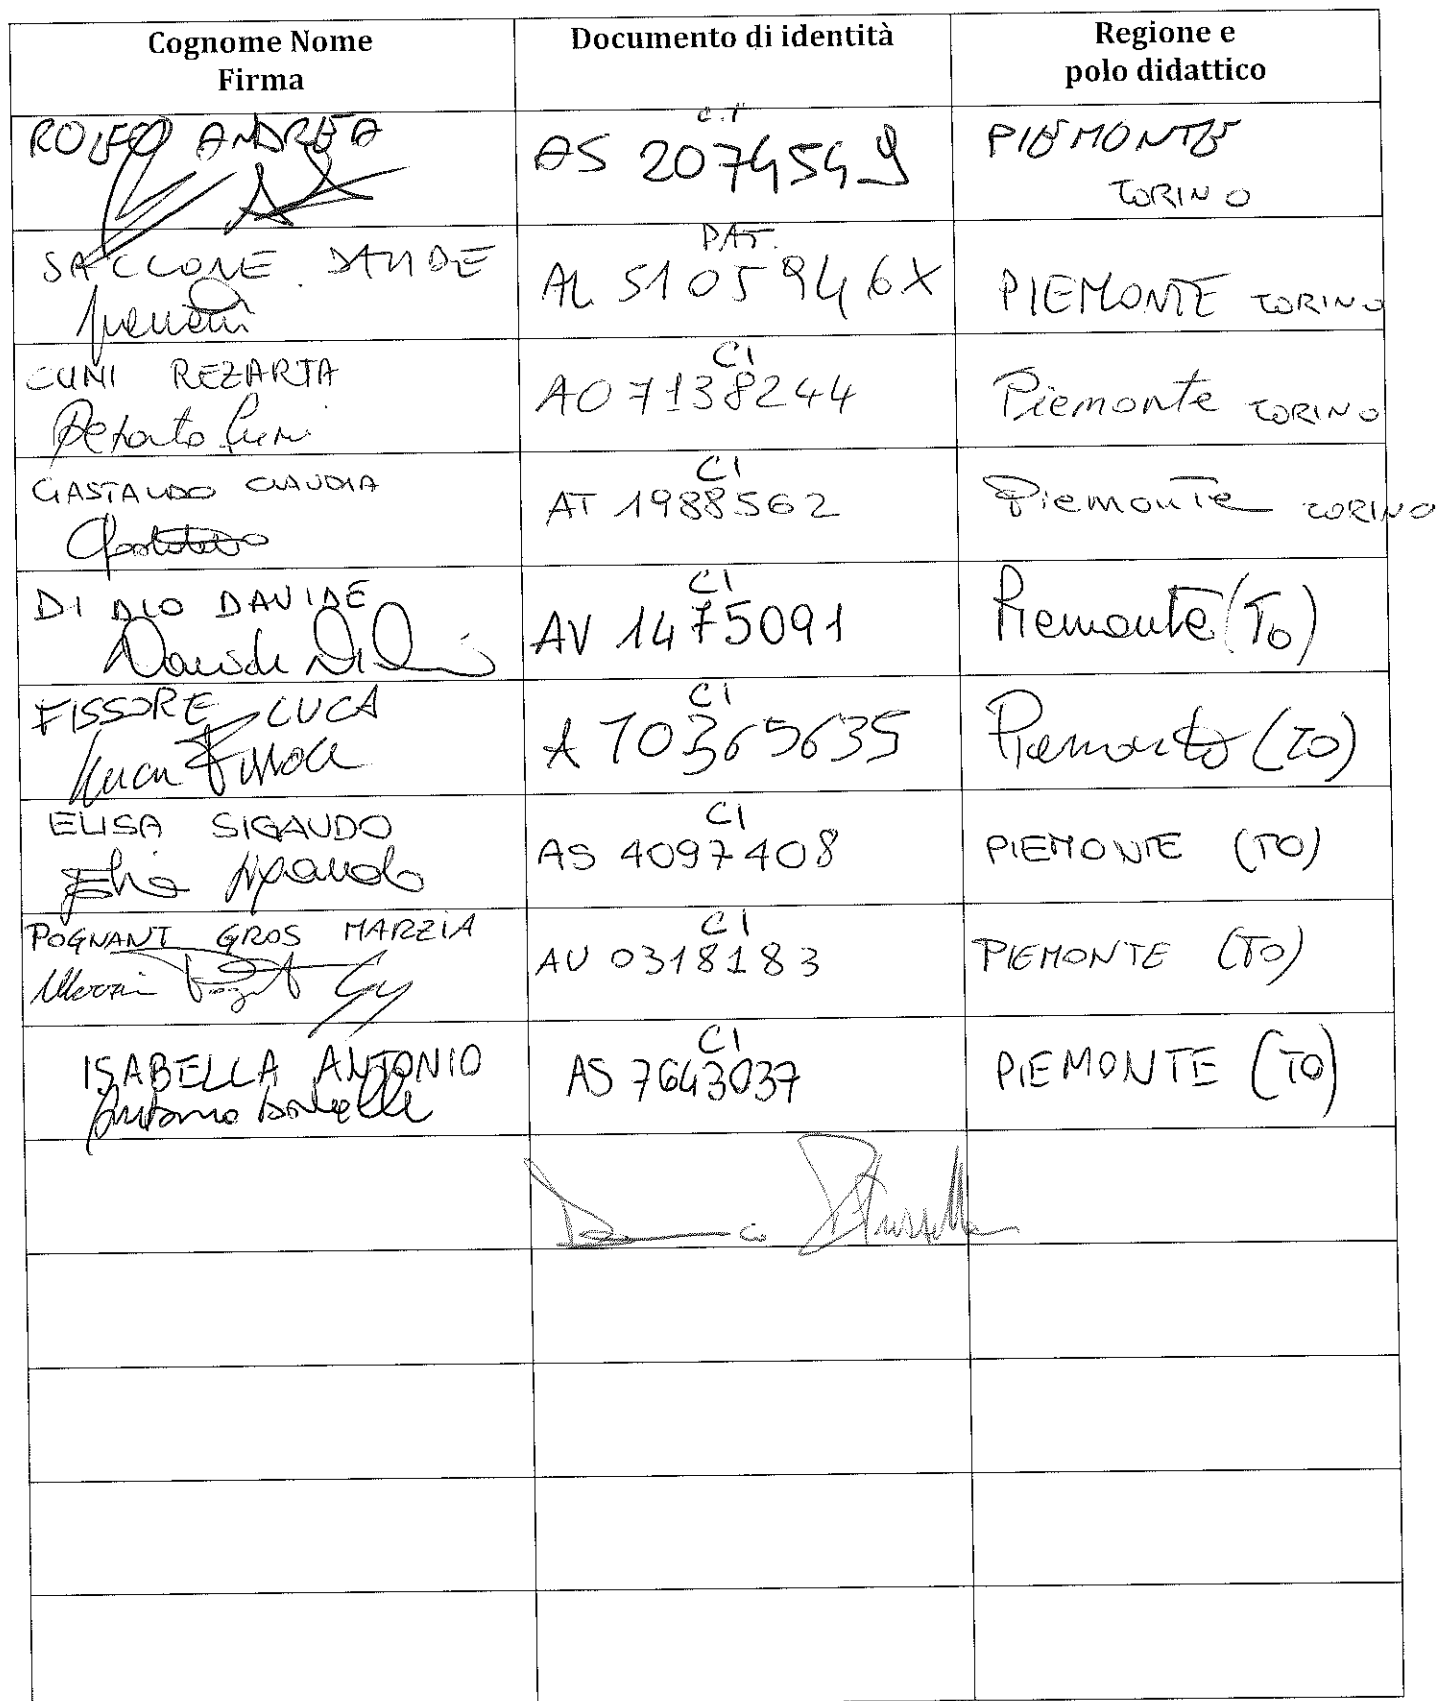 Cognome Nome
Firma
Documento di identità
Regione e
polo didattico
ANDREA
C.I
AS 2074549
PIEMONTE
TORINO
SACCONE DAVIDE
PAT.
5105946X
PIEMONTE TORINO
CUNI REZARTA
CI
AO 7138244
Piemonte TORINO
GASTALDO CLAUDIA
CI
AT 1988562
Piemonte TORINO
DI DAVIDE
Davide Di
CI
AV 1475091
Piemonte (To)
FISSORE LUCA
Luca Fissore
CI
A 10365635
Piemonte (TO)
ELISA SIGAUDO
Elisa Sigaudo
CI
AS 4097408
PIEMONTE (TO)
POGNANT GROS MARZIA
Marzia
CI
AU 0318183
PIEMONTE (TO)
ISABELLA ANTONIO
Antonio Isabella
CI
AS 7643037
PIEMONTE (TO)